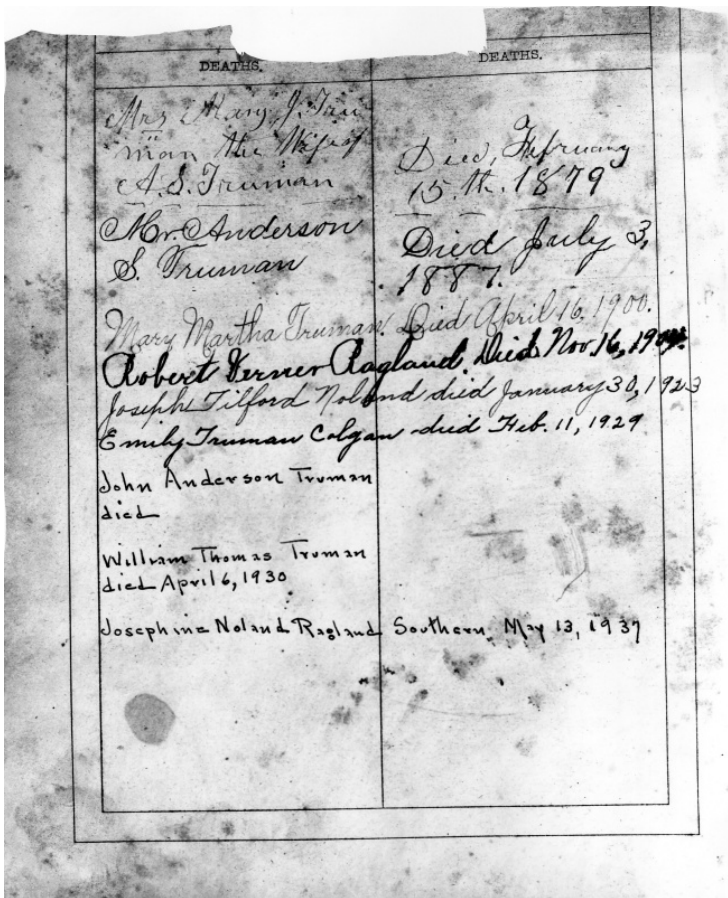 DEATHS. DEATHS.
Mrs Mary J. Tru=
man the Wife of
A.S. Truman
Died, February
15.th. 1879
Mr. Anderson
S. Truman
Died July 3,
1887.
Mary Martha Truman. Died April 16, 1900.
Robert Verner Ragland. Died Nov. 16,
Joseph Tilford Noland died January 30, 1923
Emily Truman Colgan - died Feb. 11, 1929
John Anderson Truman
died
William Thomas Truman
died April 6, 1930
Josephine Noland Ragland Southern May 13, 1937